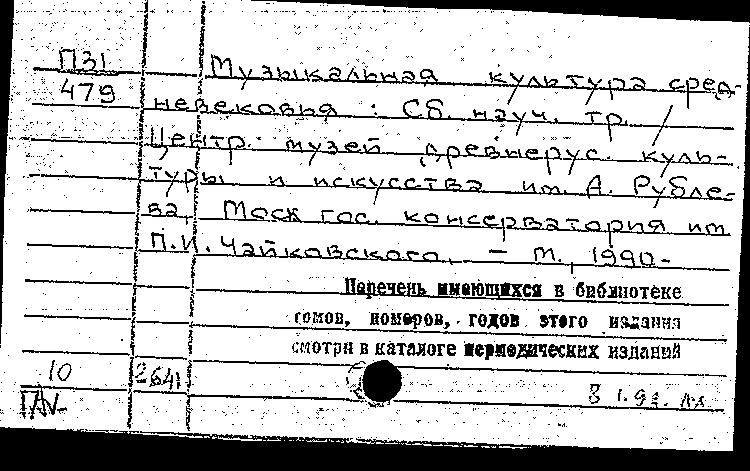 П31
479
Музыкальная культура сред-
невековья : Сб. науч. тр. /
Центр. музей древнерус. куль-
туры и искусства им. А. Рубле-
ва, Моск гос. консерватория им
П.И. Чайковского. – М., 1990-
Перечень имеющихся в библиотеке
томов, номеров, годов этого издания
смотри в каталоге периодических изданий
10
2641